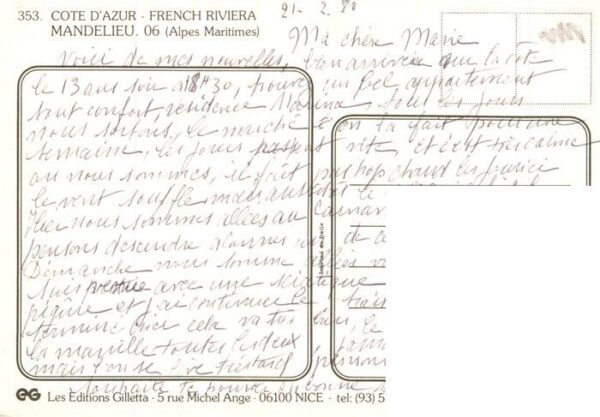 353. COTE D'AZUR - FRENCH RIVIERA
MANDELIEU. 06 (Alpes Maritimes)
21. 2. 80
Ma chère Marie
Voici de mes nouvelles, bien arrivée sur la côte
le 13 au soir a 18H30, trouvé un bel appartement
tout confort, résidence Marina, tous les jours
nous sortons, le marché on la fait pour une
semaine, les jours passent vite, et c'est très calme
ou nous sommes, il fait pas trop chaud les
le vent souffle mais aussitôt le
Hier nous sommes allées au
pensons descendre a de
Démanche nous somme allées
suis venue avec une sciatique
piqûre et j'ai continuée le
terminé ici cela va très bien, le
la marveille toutes les deux
mais on se lève
souhaite te bonne
imprimé en Italie
EG Les Editions Gilletta - 5 rue Michel Ange - 06100 NICE - tel: (93) 5